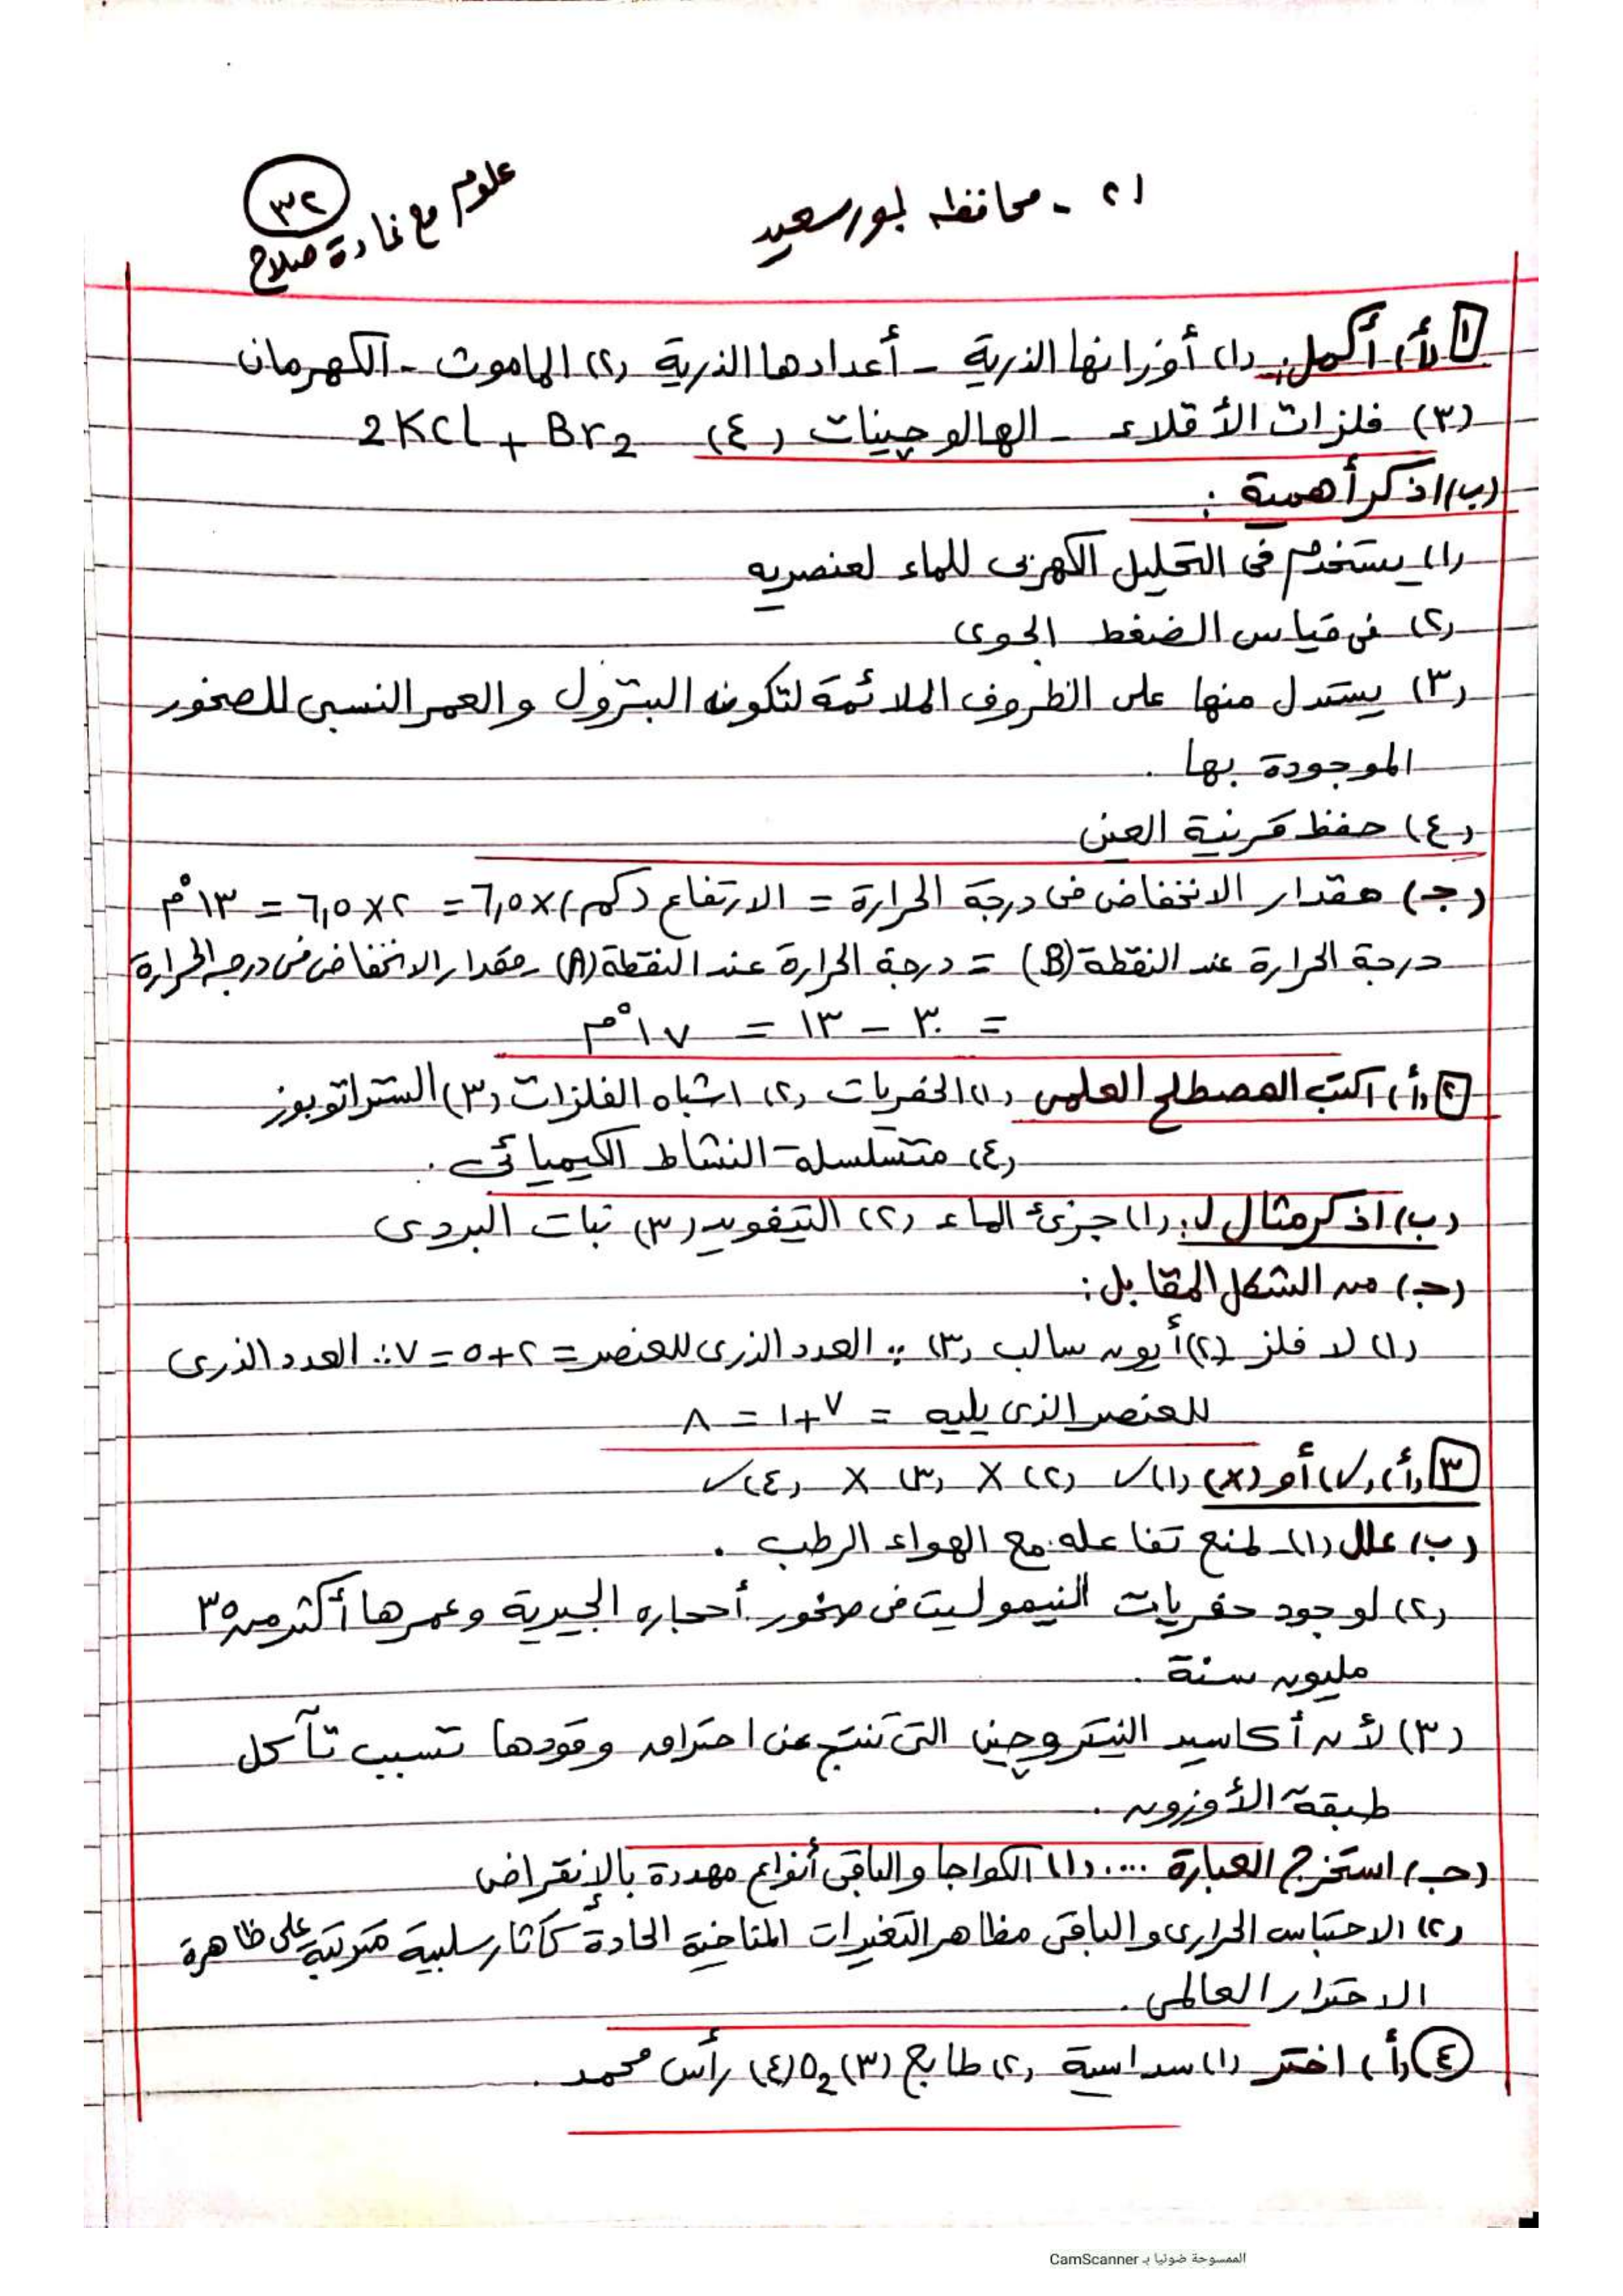 ٢١ - محافظة بورسعيد
علوم مع غادة صلاح
٣٢
١ (أ) أكمل: (١) أوزانها الذرية - أعدادها الذرية (٢) الماموث - الكهرمان
(٣) فلزات الأقلاء - الهالوجينات (٤) 2KCl + Br2
(ب) اذكر أهمية :
(١) يستخدم فى التحليل الكهربى للماء لعنصريه
(٢) فى قياس الضغط الجوى
(٣) يستدل منها على الظروف الملائمة لتكون البترول والعمر النسبى للصخور
الموجودة بها .
(٤) حفظ قرنية العين
(جـ) مقدار الانخفاض فى درجة الحرارة = الارتفاع (كم) × ٦,٥ = ٢ × ٦,٥ = ١٣°م
درجة الحرارة عند النقطة (B) = درجة الحرارة عند النقطة (A) - مقدار الانخفاض فى درجة الحرارة
= ٣٠ - ١٣ = ١٧°م
٢ (أ) اكتب المصطلح العلمى (١) الحفريات (٢) اشباه الفلزات (٣) الستراتوبوز
(٤) متسلسلة النشاط الكيميائى .
(ب) اذكر مثال لـ: (١) جزئ الماء (٢) التيفويد (٣) نبات البردى
(جـ) من الشكل المقابل :
(١) لا فلز (٢) أيون سالب (٣) ∵ العدد الذرى للعنصر = ٢+٥ = ٧ ∴ العدد الذرى
للعنصر الذى يليه = ٧+١ = ٨
٣ (أ) (✓) أو (×) (١) ✓ (٢) × (٣) × (٤) ✓
(ب) علل (١) لمنع تفاعله مع الهواء الرطب .
(٢) لوجود حفريات النيموليت فى صخور أحجاره الجيرية وعمرها أكثر من ٣٥
مليون سنة .
(٣) لأن أكاسيد النيتروجين التى تنتج عن احتراق وقودها تسبب تآكل
طبقة الأوزون .
(جـ) استخرج العبارة .... (١) الكواجا والباقى أنواع مهددة بالإنقراض
(٢) الاحتباس الحرارى والباقى مظاهر التغيرات المناخية الحادة كآثار سلبية مترتبة على ظاهرة
الاحترار العالمى .
٤ (أ) اختر (١) سداسية (٢) طابع (٣) O2 (٤) رأس محمد .
الممسوحة ضوئيا بـ CamScanner